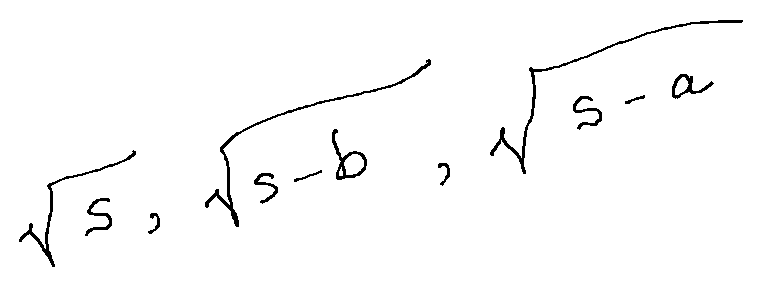 √s, √s-b, √s-a